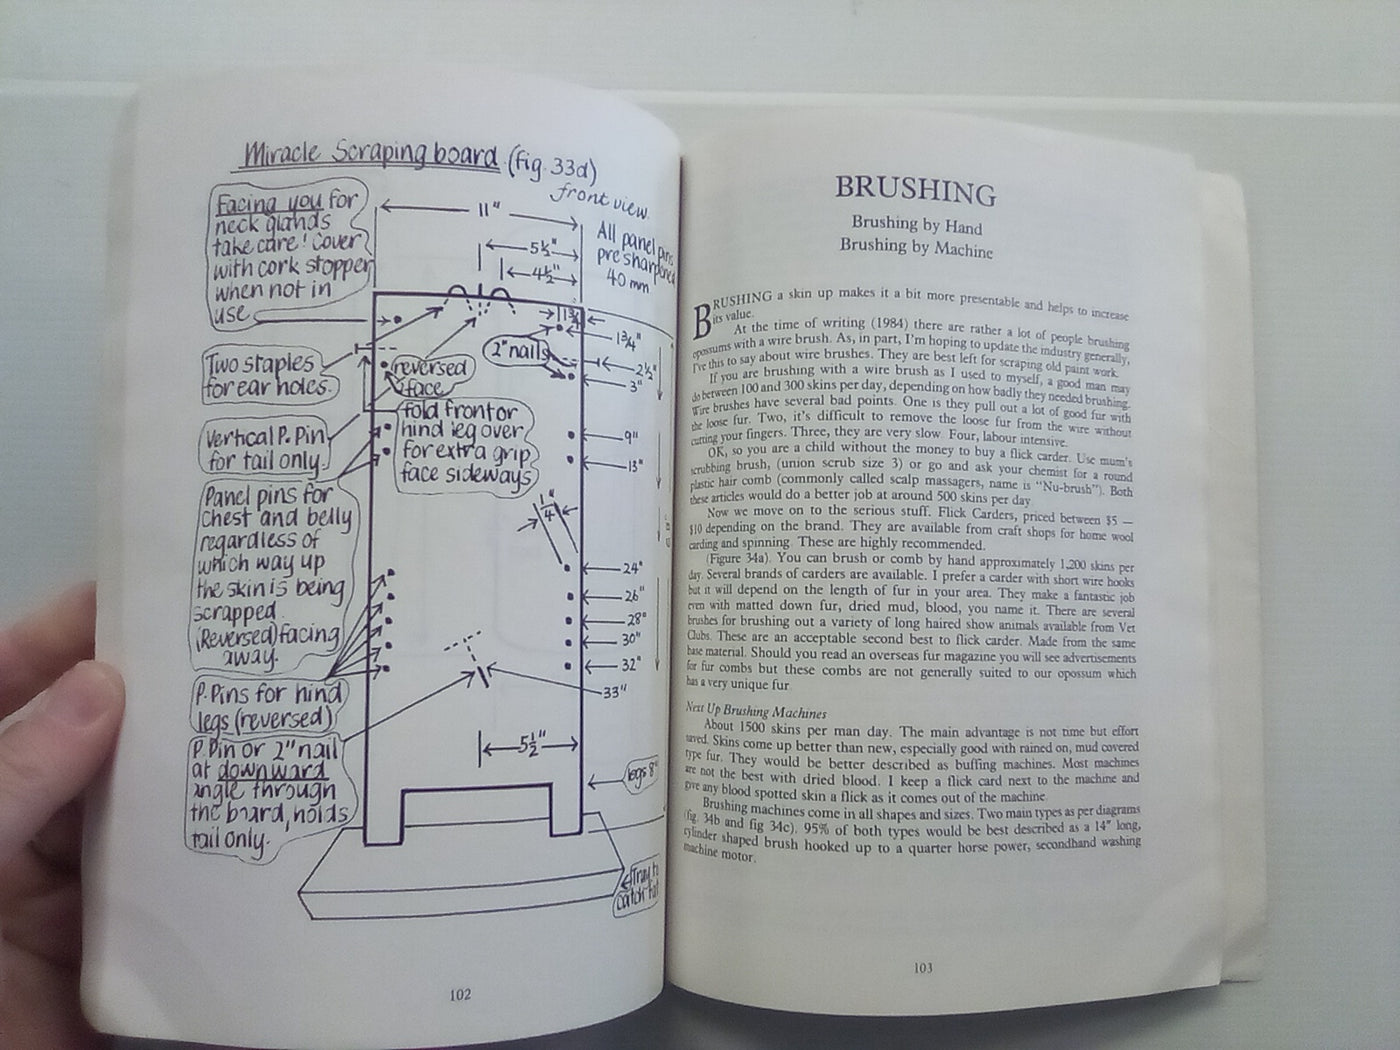 Miracle Scraping board (fig. 33d)
front view.
Facing you for
neck glands
take care! Cover
with cork stopper
when not in
use
11"
5½"
4½"
All panel pins
presharpened
40 mm
1¾"
1¾"
2" nails
2½"
3"
Two staples
for ear holes.
reversed
face
Vertical P. Pin
for tail only.
fold front or
hind leg over
for extra grip
face sideways
9"
13"
Panel pins for
Chest and belly
regardless of
which way up
the skin is being
scrapped.
(Reversed) facing
away.
¼"
24"
26"
28"
30"
32"
33"
P. Pins for hind
legs (reversed)
P. Pin or 2" nail
at downward
angle through
the board, holds
tail only.
5½"
legs 8"
Tray to
catch
102
BRUSHING
Brushing by Hand
Brushing by Machine
BRUSHING a skin up makes it a bit more presentable and helps to increase
its value.
At the time of writing (1984) there are rather a lot of people brushing
opossums with a wire brush. As, in part, I'm hoping to update the industry generally,
I've this to say about wire brushes. They are best left for scraping old paint work.
If you are brushing with a wire brush as I used to myself, a good man may
do between 100 and 300 skins per day, depending on how badly they needed brushing.
Wire brushes have several bad points. One is they pull out a lot of good fur with
the loose fur. Two, it's difficult to remove the loose fur from the wire without
cutting your fingers. Three, they are very slow. Four, labour intensive.
OK, so you are a child without the money to buy a flick carder. Use mum's
scrubbing brush, (union scrub size 3) or go and ask your chemist for a round
plastic hair comb (commonly called scalp massagers, name is "Nu-brush"). Both
these articles would do a better job at around 500 skins per day.
Now we move on to the serious stuff. Flick Carders, priced between $5 —
$10 depending on the brand. They are available from craft shops for home wool
carding and spinning. These are highly recommended.
(Figure 34a). You can brush or comb by hand approximately 1,200 skins per
day. Several brands of carders are available. I prefer a carder with short wire hooks
but it will depend on the length of fur in your area. They make a fantastic job
even with matted down fur, dried mud, blood, you name it. There are several
brushes for brushing out a variety of long haired show animals available from Vet
Clubs. These are an acceptable second best to flick carder. Made from the same
base material. Should you read an overseas fur magazine you will see advertisements
for fur combs but these combs are not generally suited to our opossum which
has a very unique fur.
Next Up Brushing Machines
About 1500 skins per man day. The main advantage is not time but effort
saved. Skins come up better than new, especially good with rained on, mud covered
type fur. They would be better described as buffing machines. Most machines
are not the best with dried blood. I keep a flick card next to the machine and
give any blood spotted skin a flick as it comes out of the machine.
Brushing machines come in all shapes and sizes. Two main types as per diagrams
(fig. 34b and fig 34c). 95% of both types would be best described as a 14" long,
cylinder shaped brush hooked up to a quarter horse power, secondhand washing
machine motor.
103